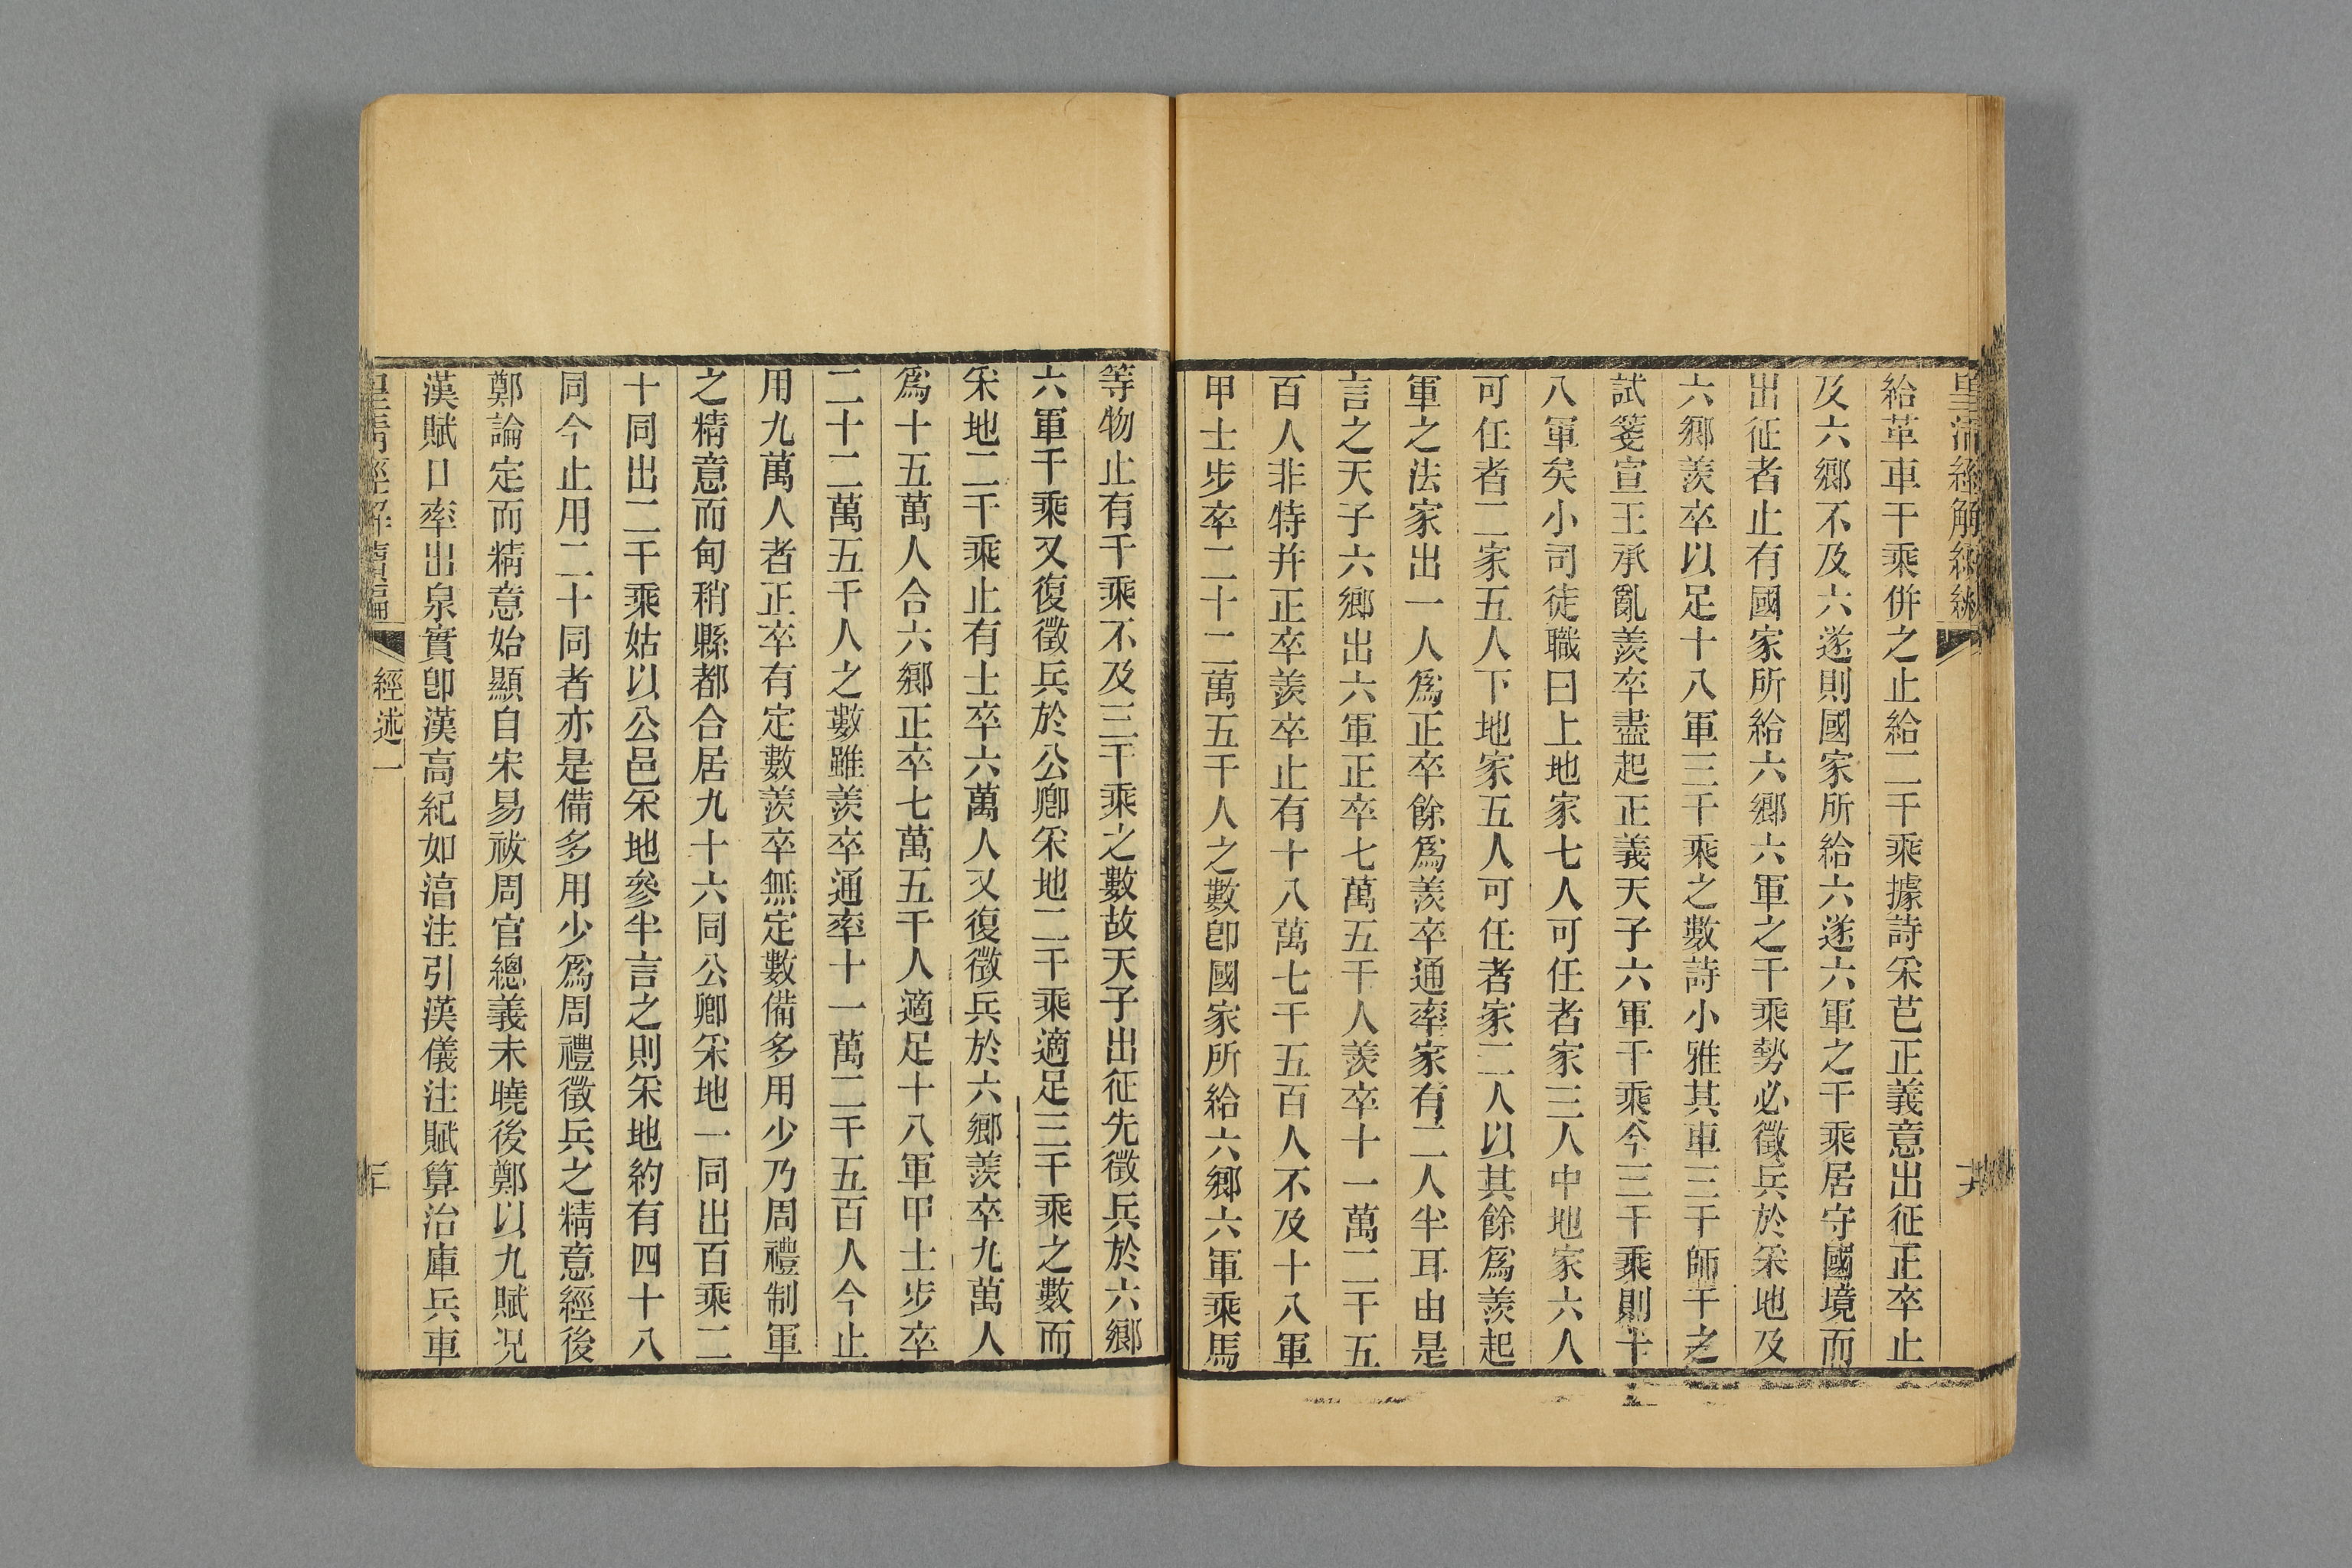 皇淸經解續編
給革車千乘併之止給二千乘據詩采芑正義意出征正卒止
及六鄉不及六遂則國家所給六遂六軍之千乘居守國境而
出征者止有國家所給六鄉六軍之千乘勢必徵兵於采地及
六鄉羨卒以足十八軍三千乘之數詩小雅其車三千師干之
試箋宣王承亂羨卒盡起正義天子六軍千乘今三千乘則十
八軍矣小司徒職曰上地家七人可任者家三人中地家六人
可任者二家五人下地家五人可任者家二人以其餘爲羨起
軍之法家出一人爲正卒餘爲羨卒通率家有二人半耳由是
言之天子六鄉出六軍正卒七萬五千人羨卒十一萬二千五
百人非特并正卒羨卒止有十八萬七千五百人不及十八軍
甲士步卒二十二萬五千人之數卽國家所給六鄉六軍乘馬
等物止有千乘不及三千乘之數故天子出征先徵兵於六鄉
六軍千乘又復徵兵於公卿采地二千乘適足三千乘之數而
采地二千乘止有士卒六萬人又復徵兵於六鄉羨卒九萬人
爲十五萬人合六鄉正卒七萬五千人適足十八軍甲士步卒
二十二萬五千人之數雖羨卒通率十一萬二千五百人今止
用九萬人者正卒有定數羨卒無定數備多用少乃周禮制軍
之精意而甸稍縣都合居九十六同公卿采地一同出百乘二
十同出二千乘姑以公邑采地參半言之則采地約有四十八
同今止用二十同者亦是備多用少爲周禮徵兵之精意經後
鄭論定而精意始顯自宋易祓周官總義未曉後鄭以九賦況
漢賦口率出泉實卽漢高紀如淊注引漢儀注賦算治庫兵車
皇淸經解續編
經述一